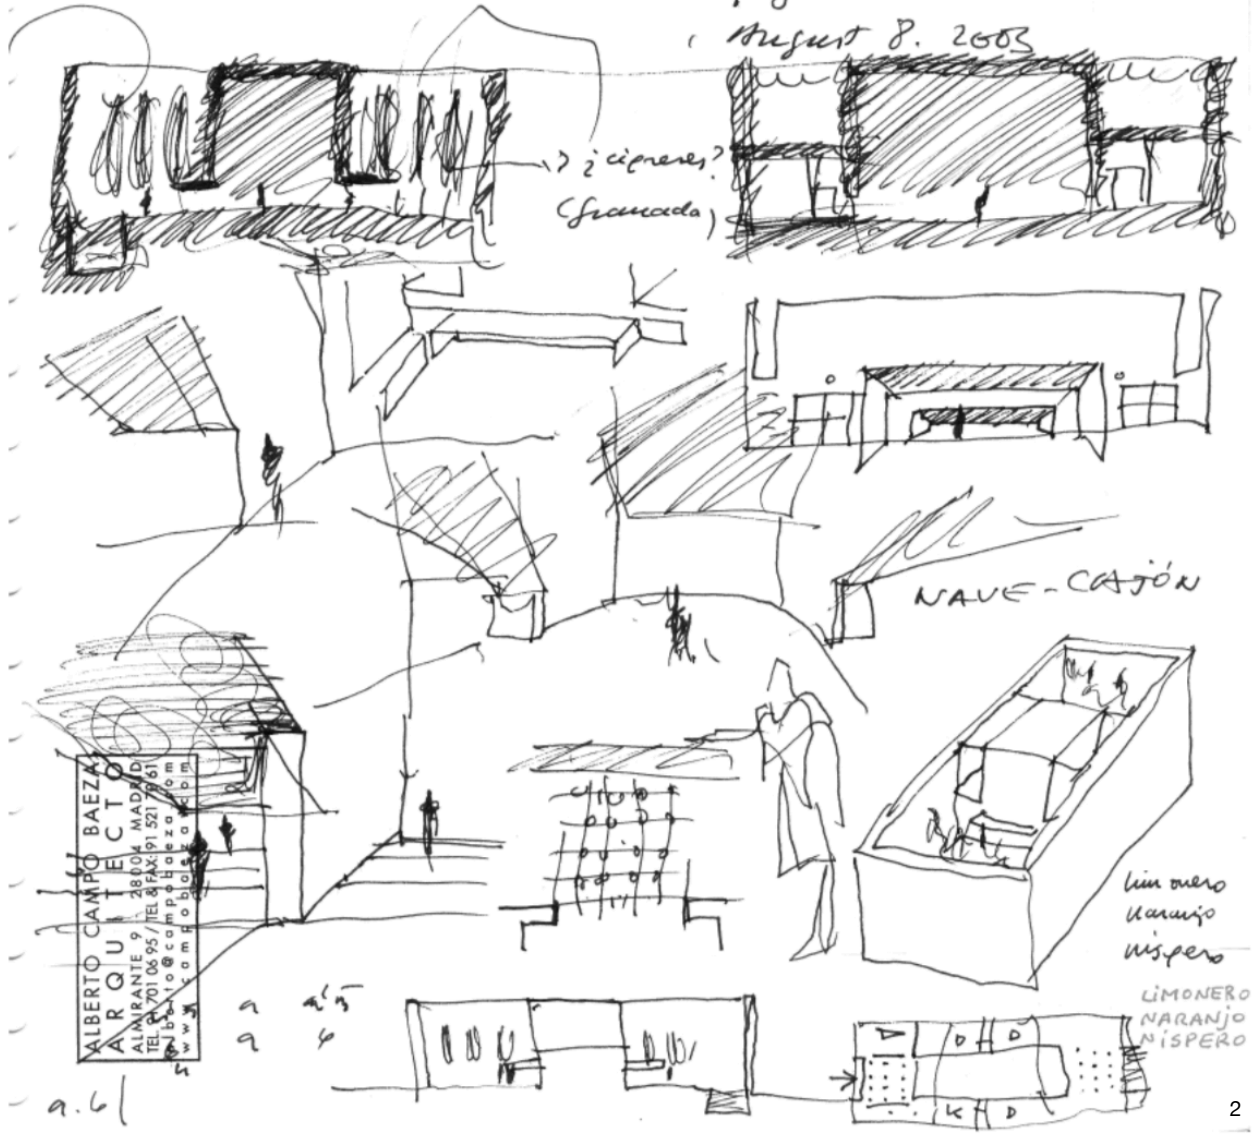 August 8. 2003
¿cipreses?
(Granada)
NAVE-CAJÓN
limonero
naranjo
níspero
LIMONERO
NARANJO
NÍSPERO
ALBERTO CAMPO BAEZA
ARQUITECTO
ALMIRANTE 9 28004 MADRID
TEL. 91 701 06 95 / TEL & FAX: 91 521 70 61
www.campobaeza.com
D D
K D
a
a 6
a.6
2